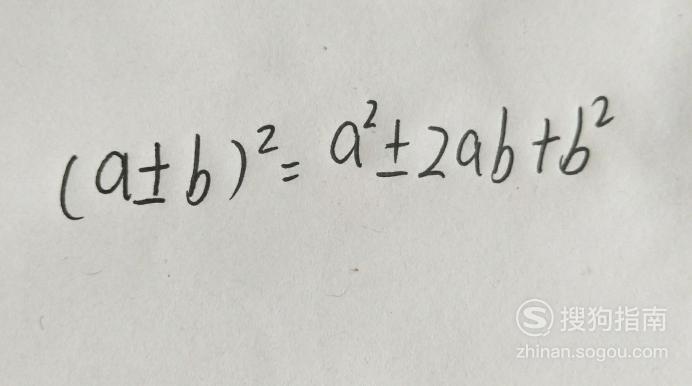 (a±b)²=a²±2ab+b²
S 搜狗指南
zhinan.sogou.com